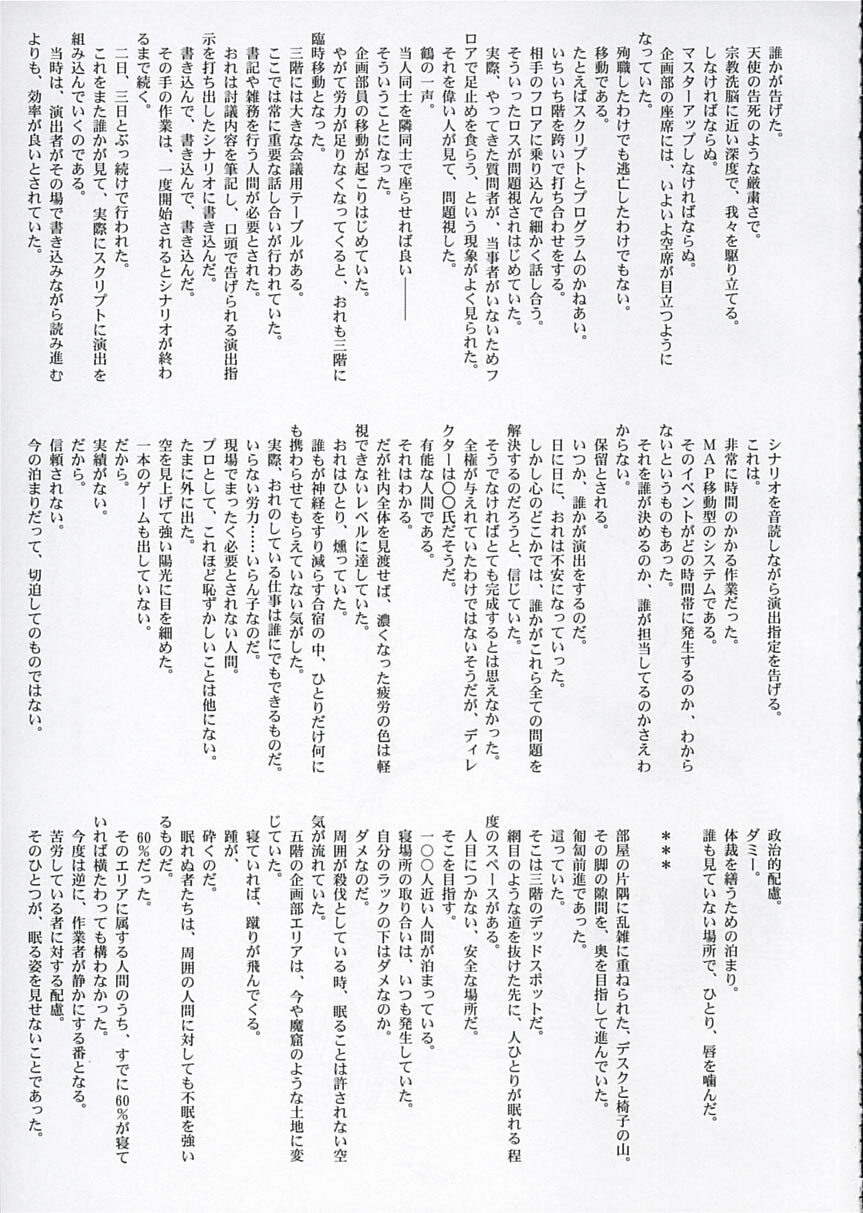 誰かが告げた。
天使の告死のような厳粛さで。
宗教洗脳に近い深度で、我々を駆り立てる。
しなければならぬ。
マスターアップしなければならぬ。
企画部の座席には、いよいよ空席が目立つように
なっていた。
殉職したわけでも逃亡したわけでもない。
移動である。
たとえばスクリプトとプログラムのかねあい。
いちいち階を跨いで打ち合わせをする。
相手のフロアに乗り込んで細かく話し合う。
そういったロスが問題視されはじめていた。
実際、やってきた質問者が、当事者がいないためフ
ロアで足止めを食らう、という現象がよく見られた。
それを偉い人が見て、問題視した。
鶴の一声。
当人同士を隣同士で座らせれば良い――
そういうことになった。
企画部員の移動が起こりはじめていた。
やがて労力が足りなくなってくると、おれも三階に
臨時移動となった。
三階には大きな会議用テーブルがある。
ここでは常に重要な話し合いが行われていた。
書記や雑務を行う人間が必要とされた。
おれは討議内容を筆記し、口頭で告げられる演出指
示を打ち出したシナリオに書き込んだ。
書き込んで、書き込んで、書き込んだ。
その手の作業は、一度開始されるとシナリオが終わ
るまで続く。
二日、三日とぶっ続けで行われた。
これをまた誰かが見て、実際にスクリプトに演出を
組み込んでいくのである。
当時は、演出者がその場で書き込みながら読み進む
よりも、効率が良いとされていた。
シナリオを音読しながら演出指定を告げる。
これは。
非常に時間のかかる作業だった。
MAP移動型のシステムである。
そのイベントがどの時間帯に発生するのか、わから
ないというものもあった。
それを誰が決めるのか、誰が担当してるのかさえわ
からない。
保留とされる。
いつか、誰かが演出をするのだ。
日に日に、おれは不安になっていった。
しかし心のどこかでは、誰かがこれら全ての問題を
解決するのだろうと、信じていた。
そうでなければとても完成するとは思えなかった。
全権が与えれていたわけではないそうだが、ディレ
クターは〇〇氏だそうだ。
有能な人間である。
それはわかる。
だが社内全体を見渡せば、濃くなった疲労の色は軽
視できないレベルに達していた。
おれはひとり、燻っていた。
誰もが神経をすり減らす合宿の中、ひとりだけ何に
も携わらせてもらえていない気がした。
実際、おれのしている仕事は誰にでもできるものだ。
いらない労力……いらん子なのだ。
現場でまったく必要とされない人間。
プロとして、これほど恥ずかしいことは他にない。
たまに外に出た。
空を見上げて強い陽光に目を細めた。
一本のゲームも出していない。
だから。
実績がない。
だから。
信頼されない。
今の泊まりだって、切迫してのものではない。
政治的配慮。
ダミー。
体裁を繕うための泊まり。
誰も見ていない場所で、ひとり、唇を噛んだ。
＊＊＊
部屋の片隅に乱雑に重ねられた、デスクと椅子の山。
その脚の隙間を、奥を目指して進んでいた。
匍匐前進であった。
這っていた。
そこは三階のデッドスポットだ。
網目のような道を抜けた先に、人ひとりが眠れる程
度のスペースがある。
人目につかない、安全な場所だ。
そこを目指す。
一〇〇人近い人間が泊まっている。
寝場所の取り合いは、いつも発生していた。
自分のラックの下はダメなのか。
ダメなのだ。
周囲が殺伐としている時、眠ることは許されない空
気が流れていた。
五階の企画部エリアは、今や魔窟のような土地に変
じていた。
寝ていれば、蹴りが飛んでくる。
踵が、
砕くのだ。
眠れぬ者たちは、周囲の人間に対しても不眠を強い
るものだ。
60％だった。
そのエリアに属する人間のうち、すでに60％が寝て
いれば横たわっても構わなかった。
今度は逆に、作業者が静かにする番となる。
苦労している者に対する配慮。
そのひとつが、眠る姿を見せないことであった。